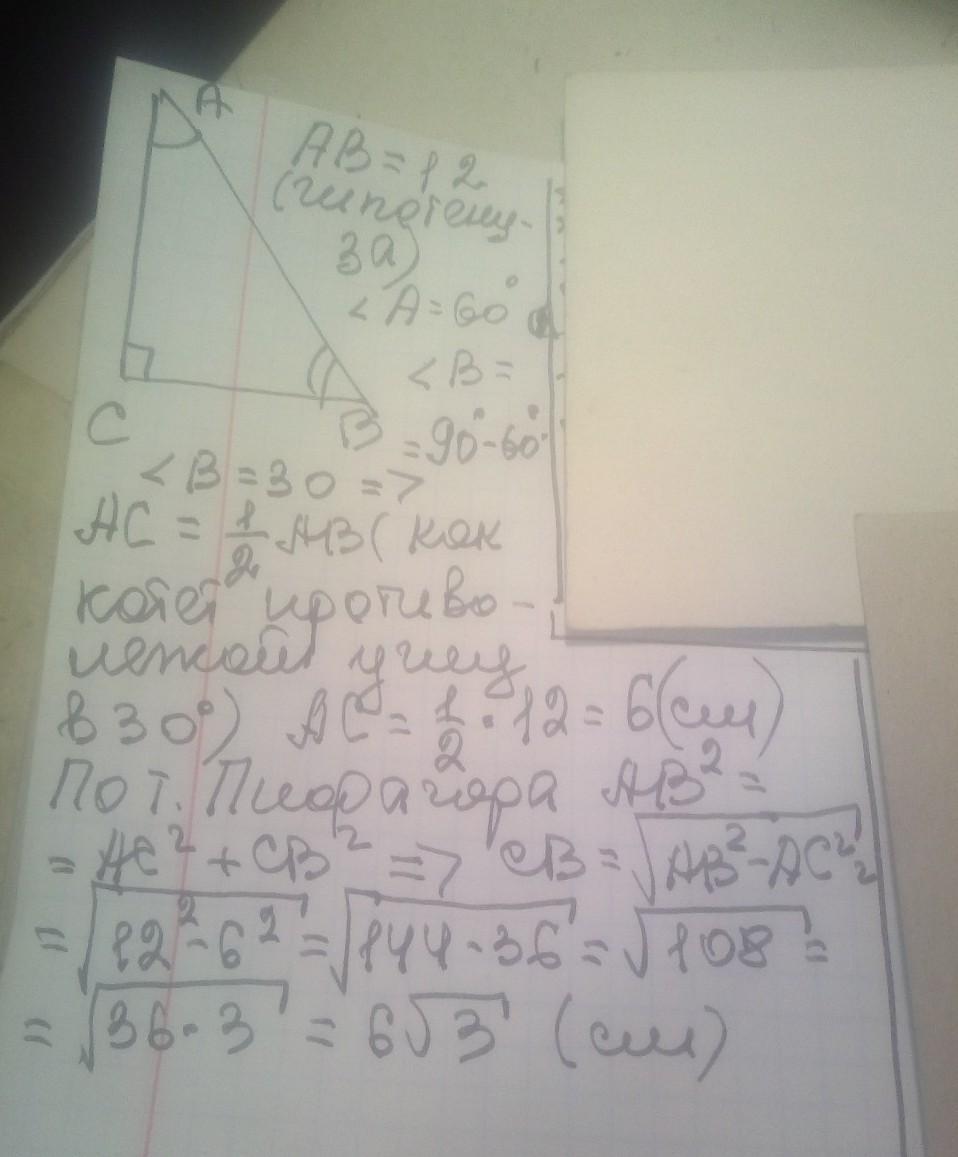 A
AB = 12
(гипотену-
за)
< A = 60°
< B =
C
B
= 90° - 60°
< B = 30 =>
AC = 1/2 AB ( как
катет противо -
лежай углу
в 30°) AC = 1/2 · 12 = 6 (см)
По т. Пифрагора AB² =
= AC² + CB² => CB = √AB² - AC² =
= √12² - 6² = √144 - 36 = √108 =
= √36 · 3 = 6√3 (см)